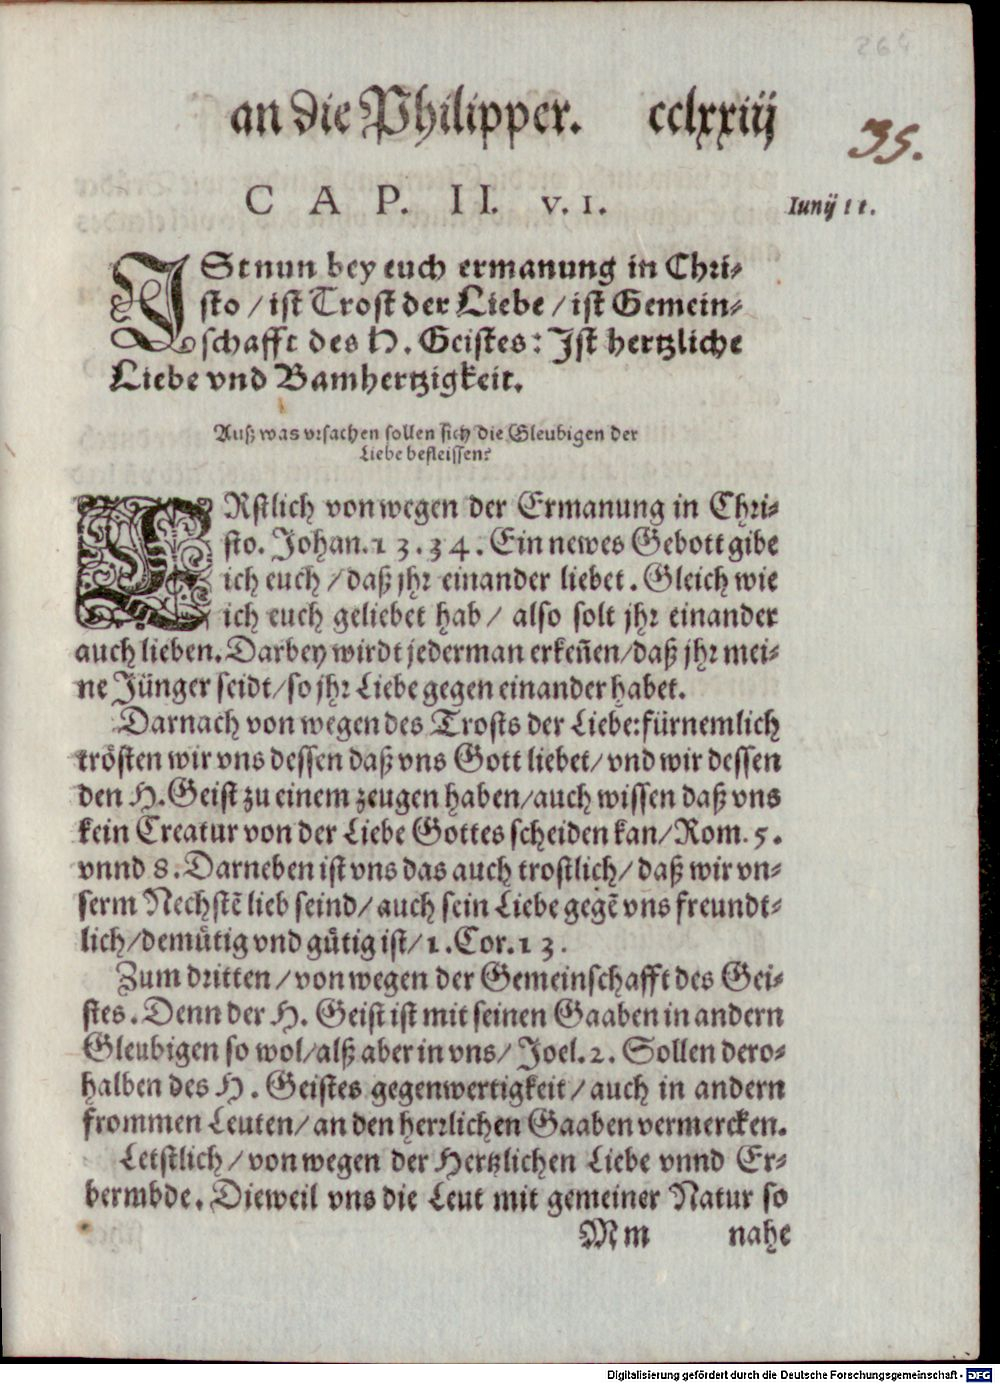 264
an die Philipper. cclxxiij
35.
CAP. II. v. 1.
Iunij 11.
ISt nun bey euch ermanung in Chri-
sto / ist Trost der Liebe / ist Gemein-
schafft des H. Geistes: Ist hertzliche
Liebe vnd Bamhertzigkeit.
Auß was vrsachen sollen sich die Gleubigen der
Liebe befleissen?
ERstlich von wegen der Ermanung in Chri-
sto. Johan. 13. 34. Ein newes Gebott gibe
ich euch / daß jhr einander liebet. Gleich wie
ich euch geliebet hab / also solt jhr einander
auch lieben. Darbey wirdt jederman erkeñen / daß jhr mei-
ne Jünger seidt / so jhr Liebe gegen einander habet.
Darnach von wegen des Trosts der Liebe: fürnemlich
trösten wir vns dessen daß vns Gott liebet / vnd wir dessen
den H. Geist zu einem zeugen haben / auch wissen daß vns
kein Creatur von der Liebe Gottes scheiden kan / Rom. 5.
vnnd 8. Darneben ist vns das auch trostlich / daß wir vn-
serm Nechstẽ lieb seind / auch sein Liebe gegẽ vns freundt-
lich / demütig vnd gütig ist / 1. Cor. 13.
Zum dritten / von wegen der Gemeinschafft des Gei-
stes. Denn der H. Geist ist mit seinen Gaaben in andern
Gleubigen so wol / alß aber in vns / Joel. 2. Sollen dero-
halben des H. Geistes gegenwertigkeit / auch in andern
frommen Leuten / an den herrlichen Gaaben vermercken.
Letstlich / von wegen der Hertzlichen Liebe vnnd Er-
bermbde. Dieweil vns die Leut mit gemeiner Natur so
Mm nahe
Digitalisierung gefördert durch die Deutsche Forschungsgemeinschaft - DFG